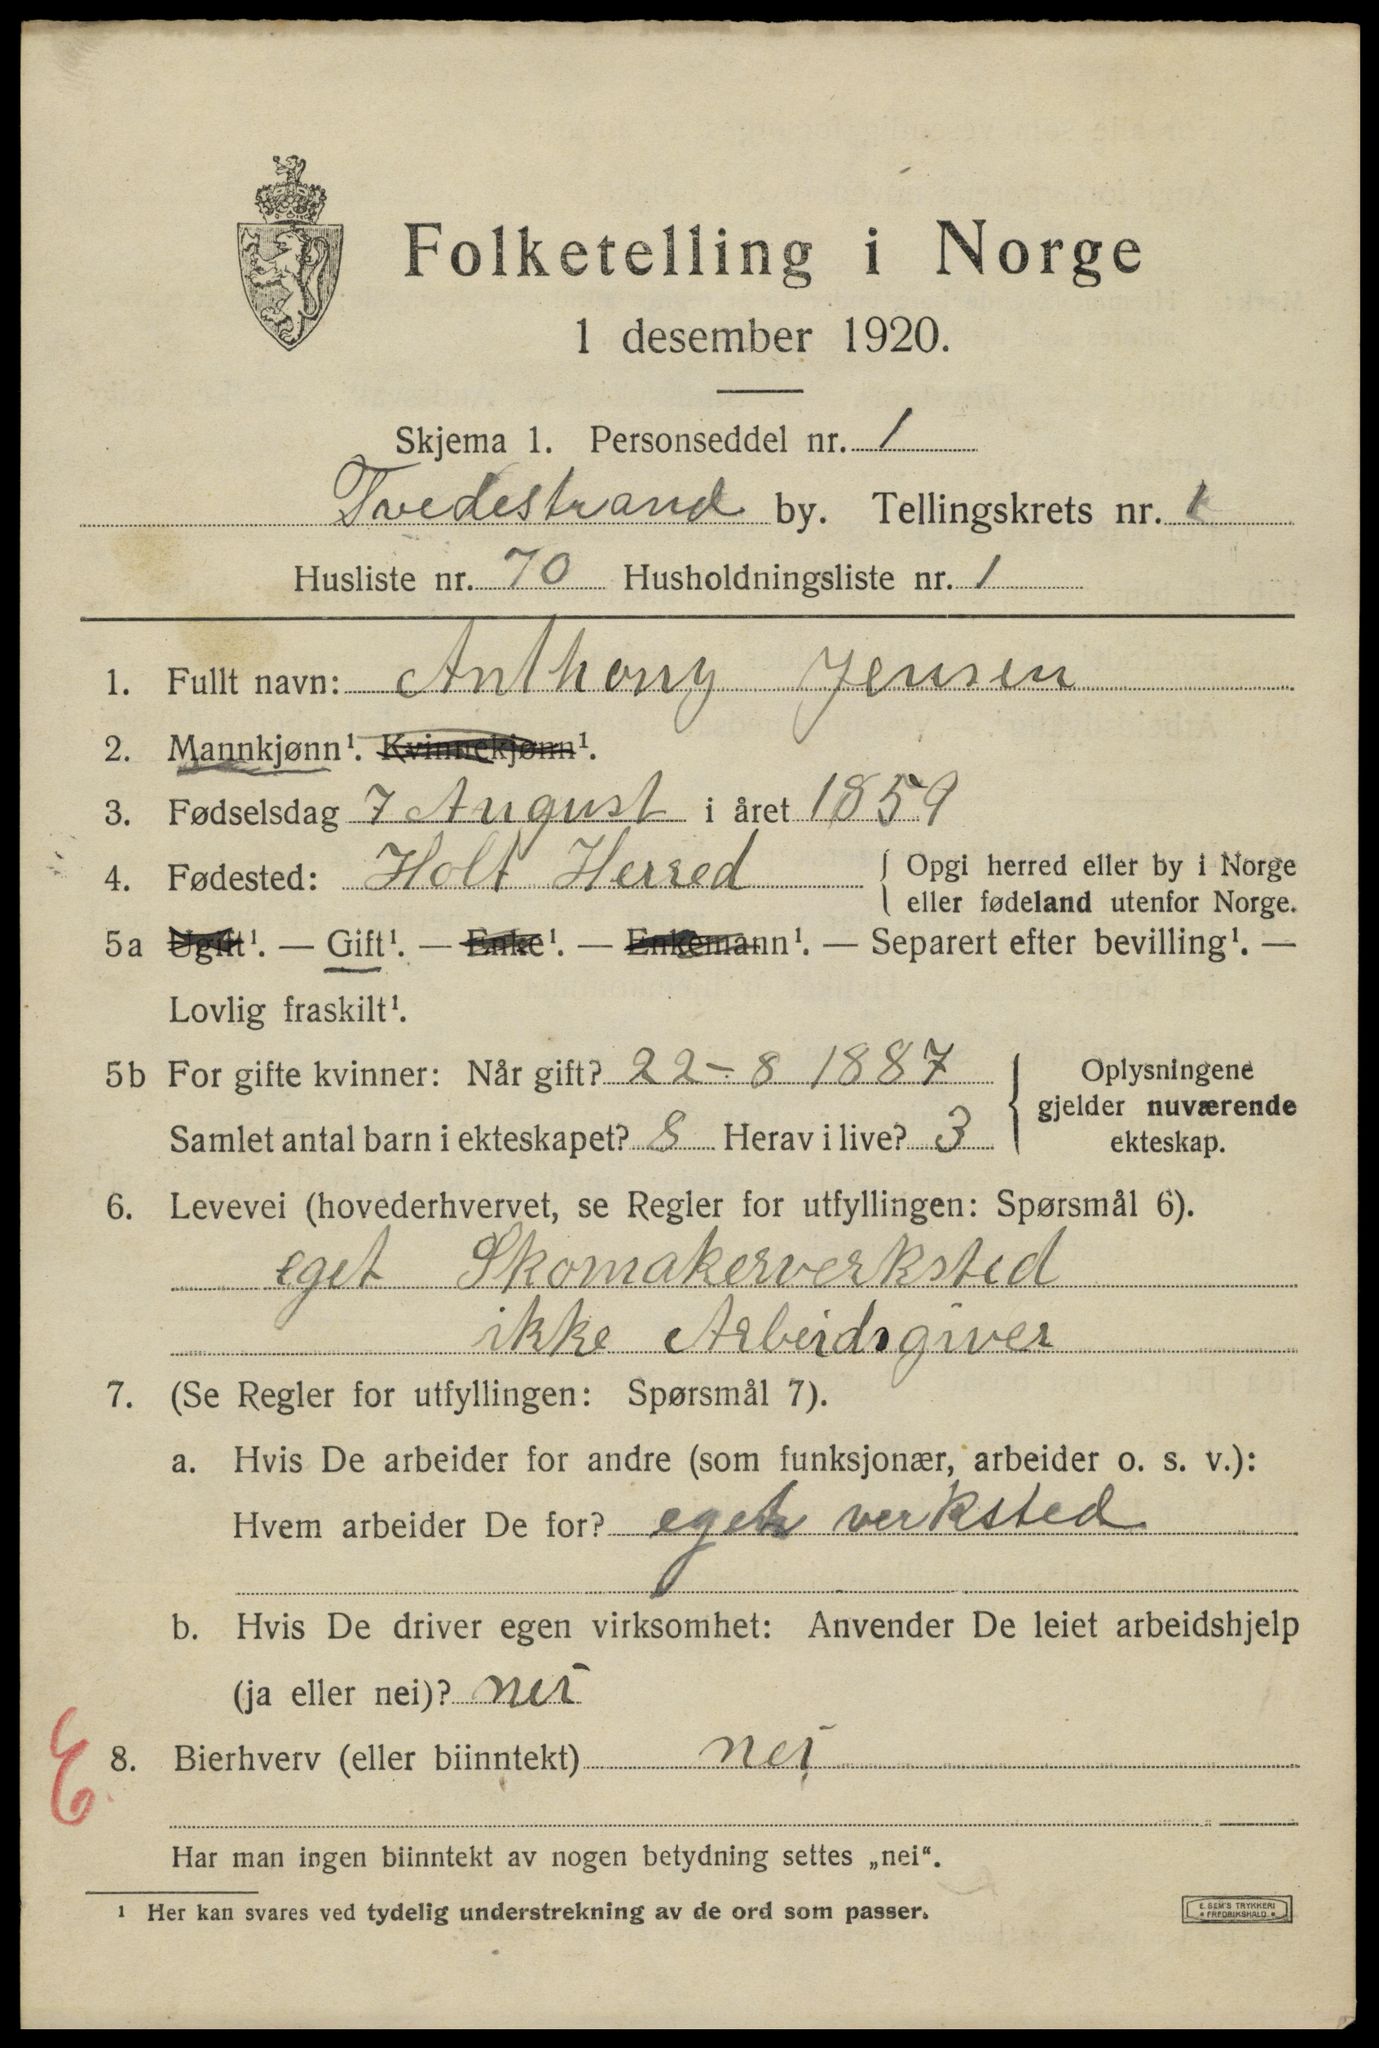 Folketelling i Norge
1 desember 1920.
Skjema 1. Personseddel nr. 1
Tvedestrand by. Tellingskrets nr. 1
Husliste nr. 70 Husholdningsliste nr. 1
1. Fullt navn: Anthony Jensen
2. Mannkjønn¹. Kvinnekjønn¹.
3. Fødselsdag 7 August i året 1859
4. Fødested: Holt Herred { Opgi herred eller by i Norge
eller fødeland utenfor Norge.
5a Ugift¹. — Gift¹. — Enke¹. — Enkemann¹. — Separert efter bevilling¹. —
Lovlig fraskilt¹.
5b For gifte kvinner: Når gift? 22-8 1887
Samlet antal barn i ekteskapet? 8 Herav i live? 3
Oplysningene
gjelder nuværende
ekteskap.
6. Levevei (hovederhvervet, se Regler for utfyllingen: Spørsmål 6).
eget Skomakerverksted
ikke Arbeidsgiver
7. (Se Regler for utfyllingen: Spørsmål 7).
a. Hvis De arbeider for andre (som funksjonær, arbeider o. s. v.):
Hvem arbeider De for? eget verksted
b. Hvis De driver egen virksomhet: Anvender De leiet arbeidshjelp
(ja eller nei)? nei
E
8. Bierhverv (eller biinntekt) nei
Har man ingen biinntekt av nogen betydning settes „nei“.
¹ Her kan svares ved tydelig understrekning av de ord som passer.
E. SEM'S TRYKKERI
FREDRIKSHALD.